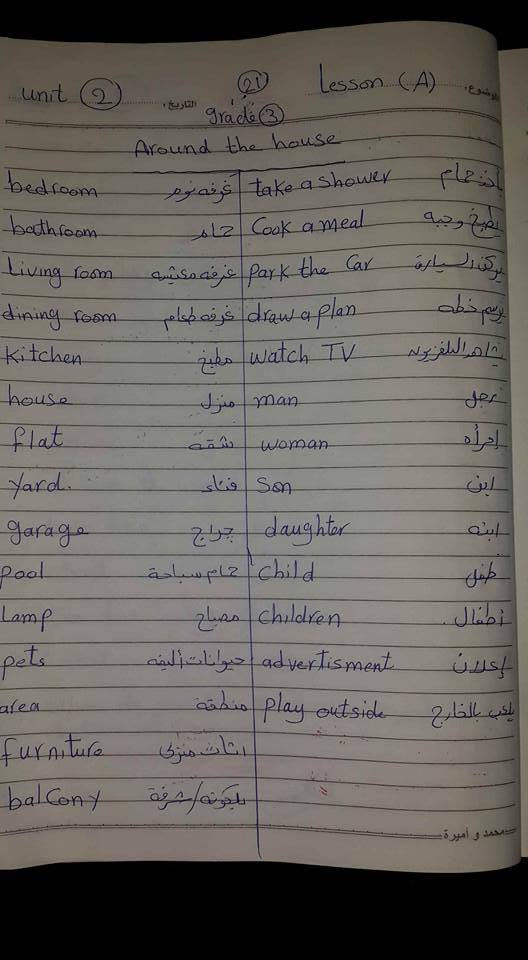 unit 2 التاريخ: 21 Lesson (A) الموضوع:
grade 3
Around the house
bedroom غرفه نوم take a shower يأخذ حمام
bathroom حمام Cook a meal يطبخ وجبه
Living room غرفه معيشه park the Car يركن السيارة
dining room غرفه طعام draw a plan يرسم خطه
kitchen مطبخ watch TV يشاهد التلفزيون
house منزل man رجل
flat شقه woman إمرأه
yard. فناء Son ابن
garage جراج daughter ابنه
pool حمام سباحة child طفل
Lamp مصباح children أطفال.
pets حيوانات أليفه advertisment إعلان
area منطقة play outside يلعب بالخارج
furniture اثاث منزلى
balCony بلكونه/شرفة
محمد و أميرة